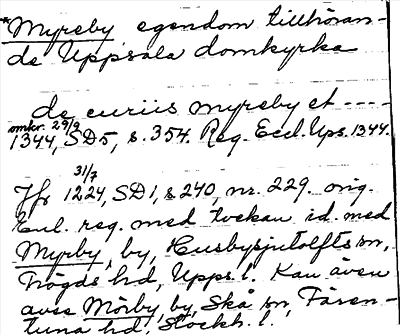 *Myreby egendom tillhöran-
de Uppsala domkyrka
de curiis myreby et ----
omkr. 29/9
1344, SD5, s. 354. Reg. Eccl. Ups. 1344.
31/7
Jfr 1224, SD1, s 240, nr. 229. orig.
Enl. reg. med tvekan id. med
Myrby, by, Husbysjutolfts sn,
Trögds hd, Upps. l. Kan även
avse Mörby, by, Skå sn, Fären-
tuna hd, Stockh. l.